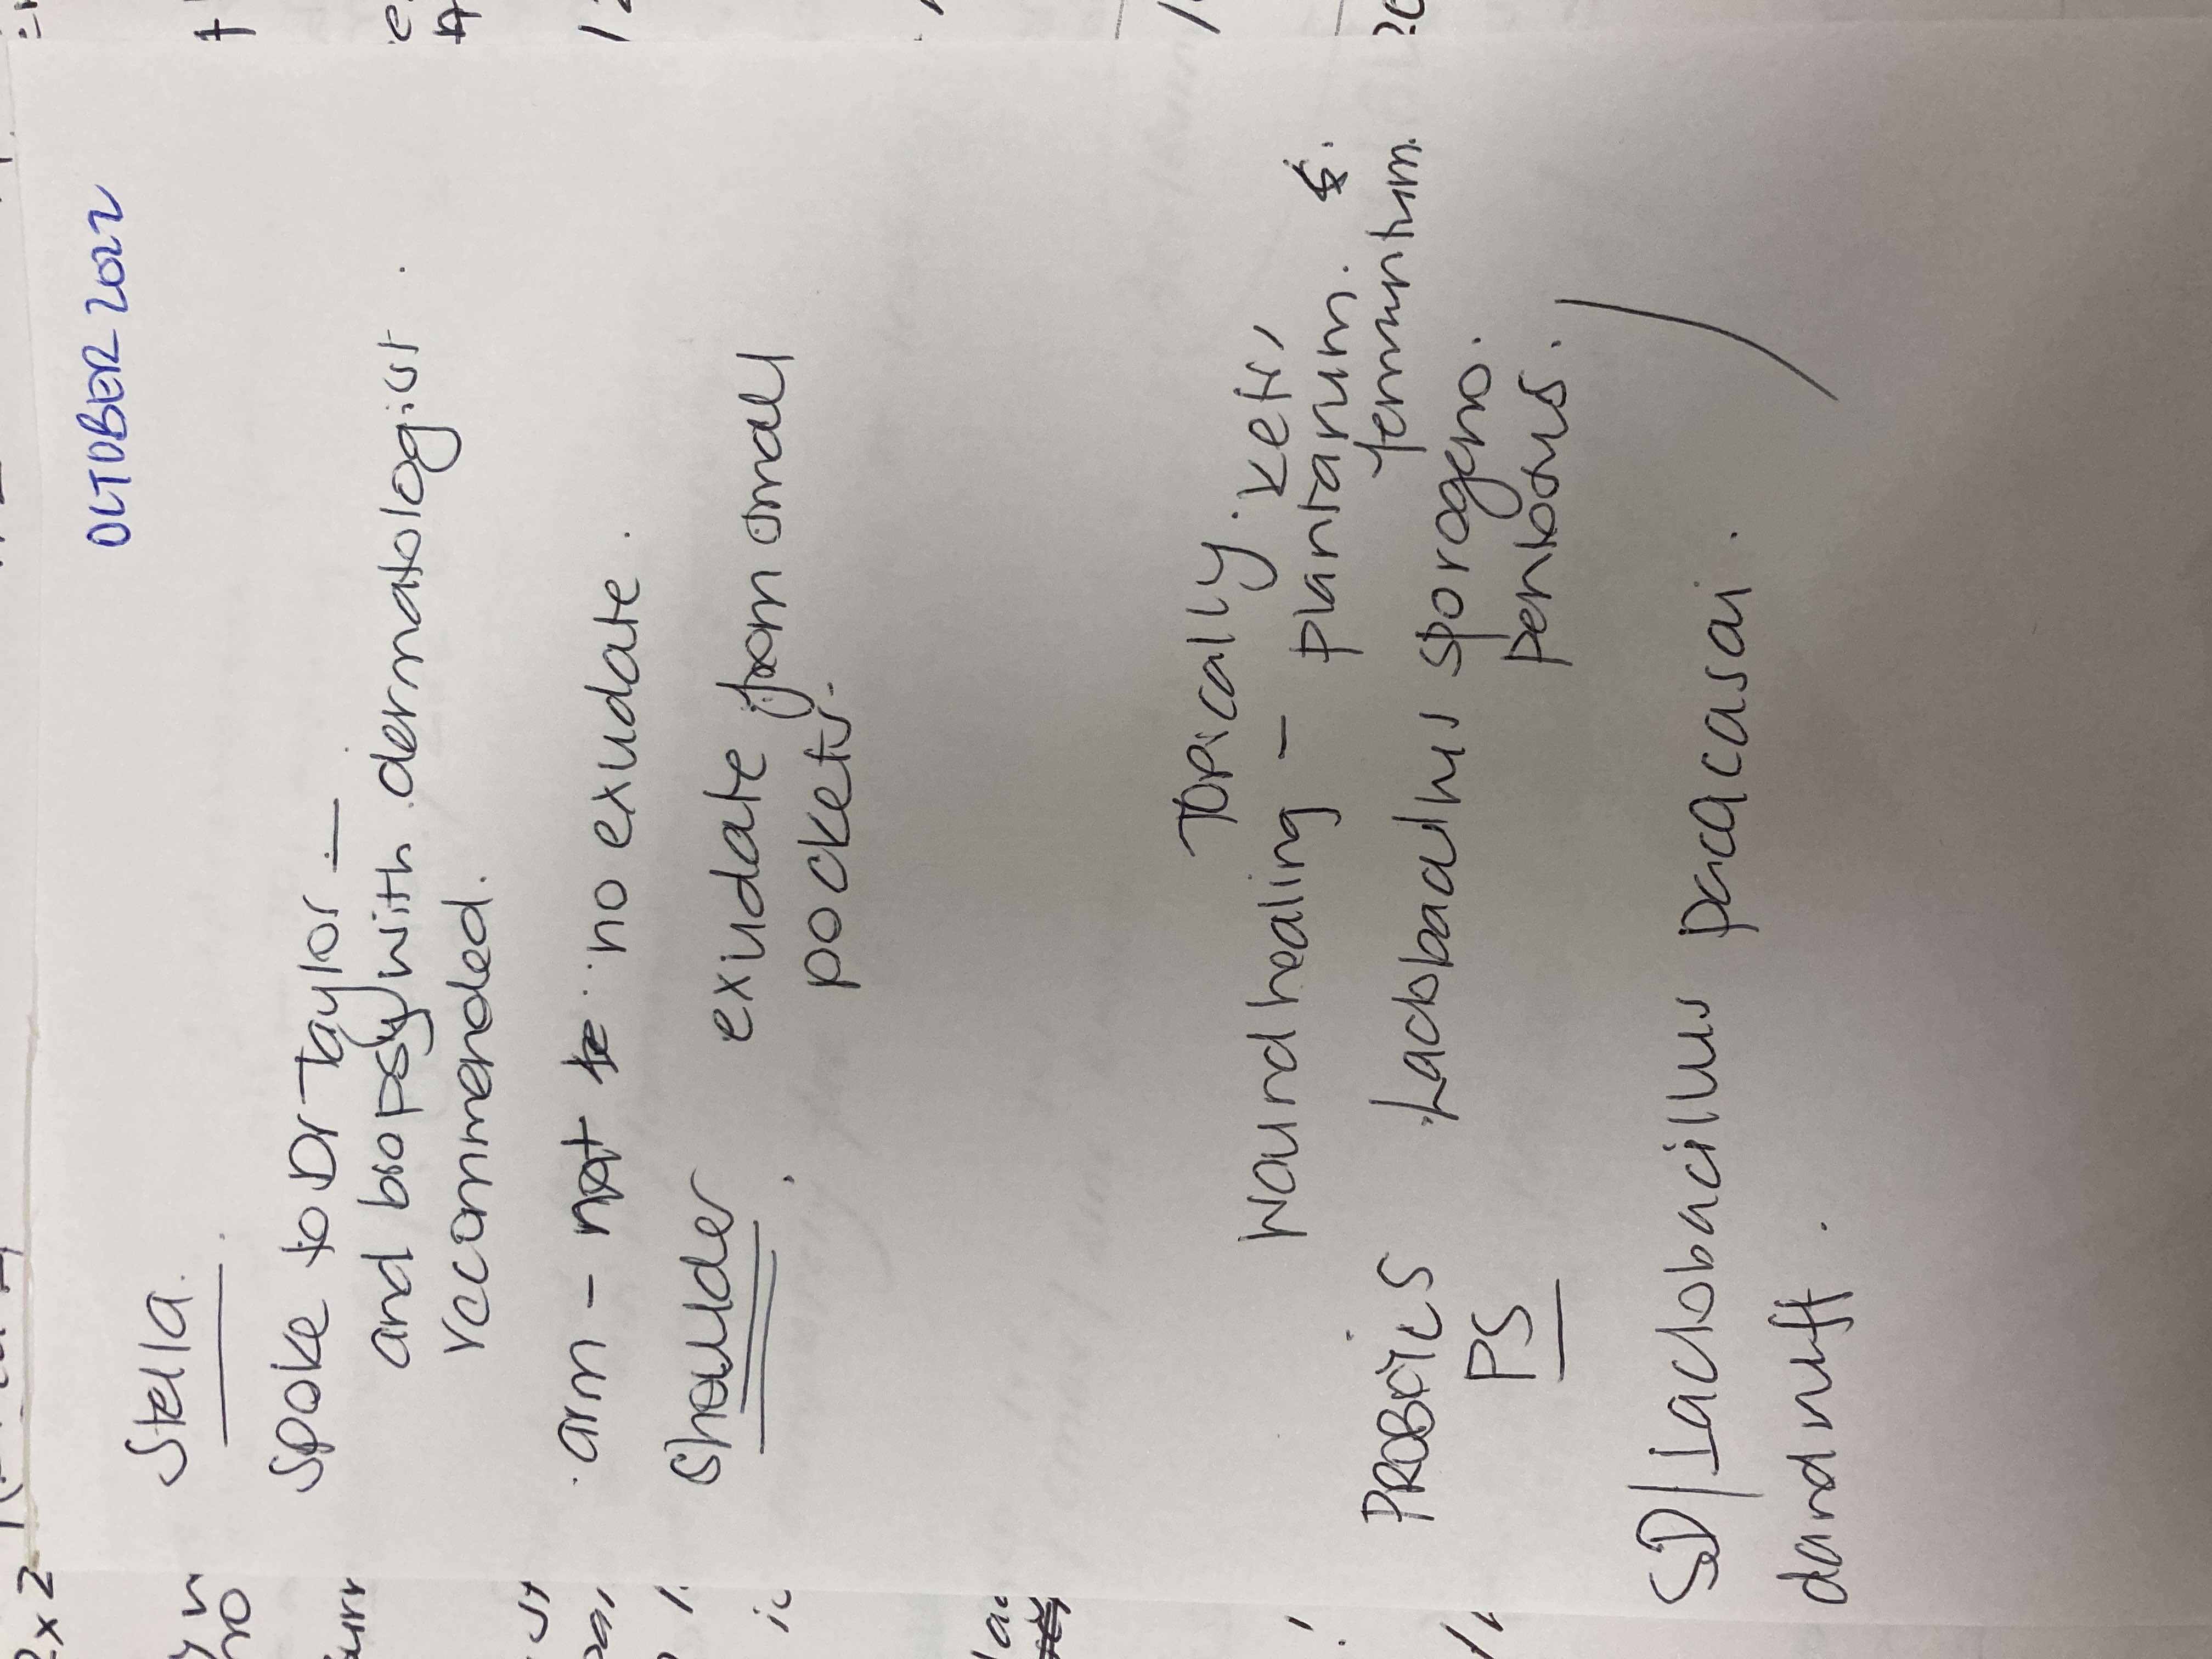 OCTOBER 2022
Stella.
Spoke to Dr Taylor –
and biopsy with dermatologist.
recommended.
arm – not no exudate.
Shoulder exudate from small
pockets.
Topically.
wound healing – plantarum. &
fermentum.
PROBOTICS Lactobacillus sporogens.
PS pentosus.
SD/ Lactobacillus paracasai.
dandruff.